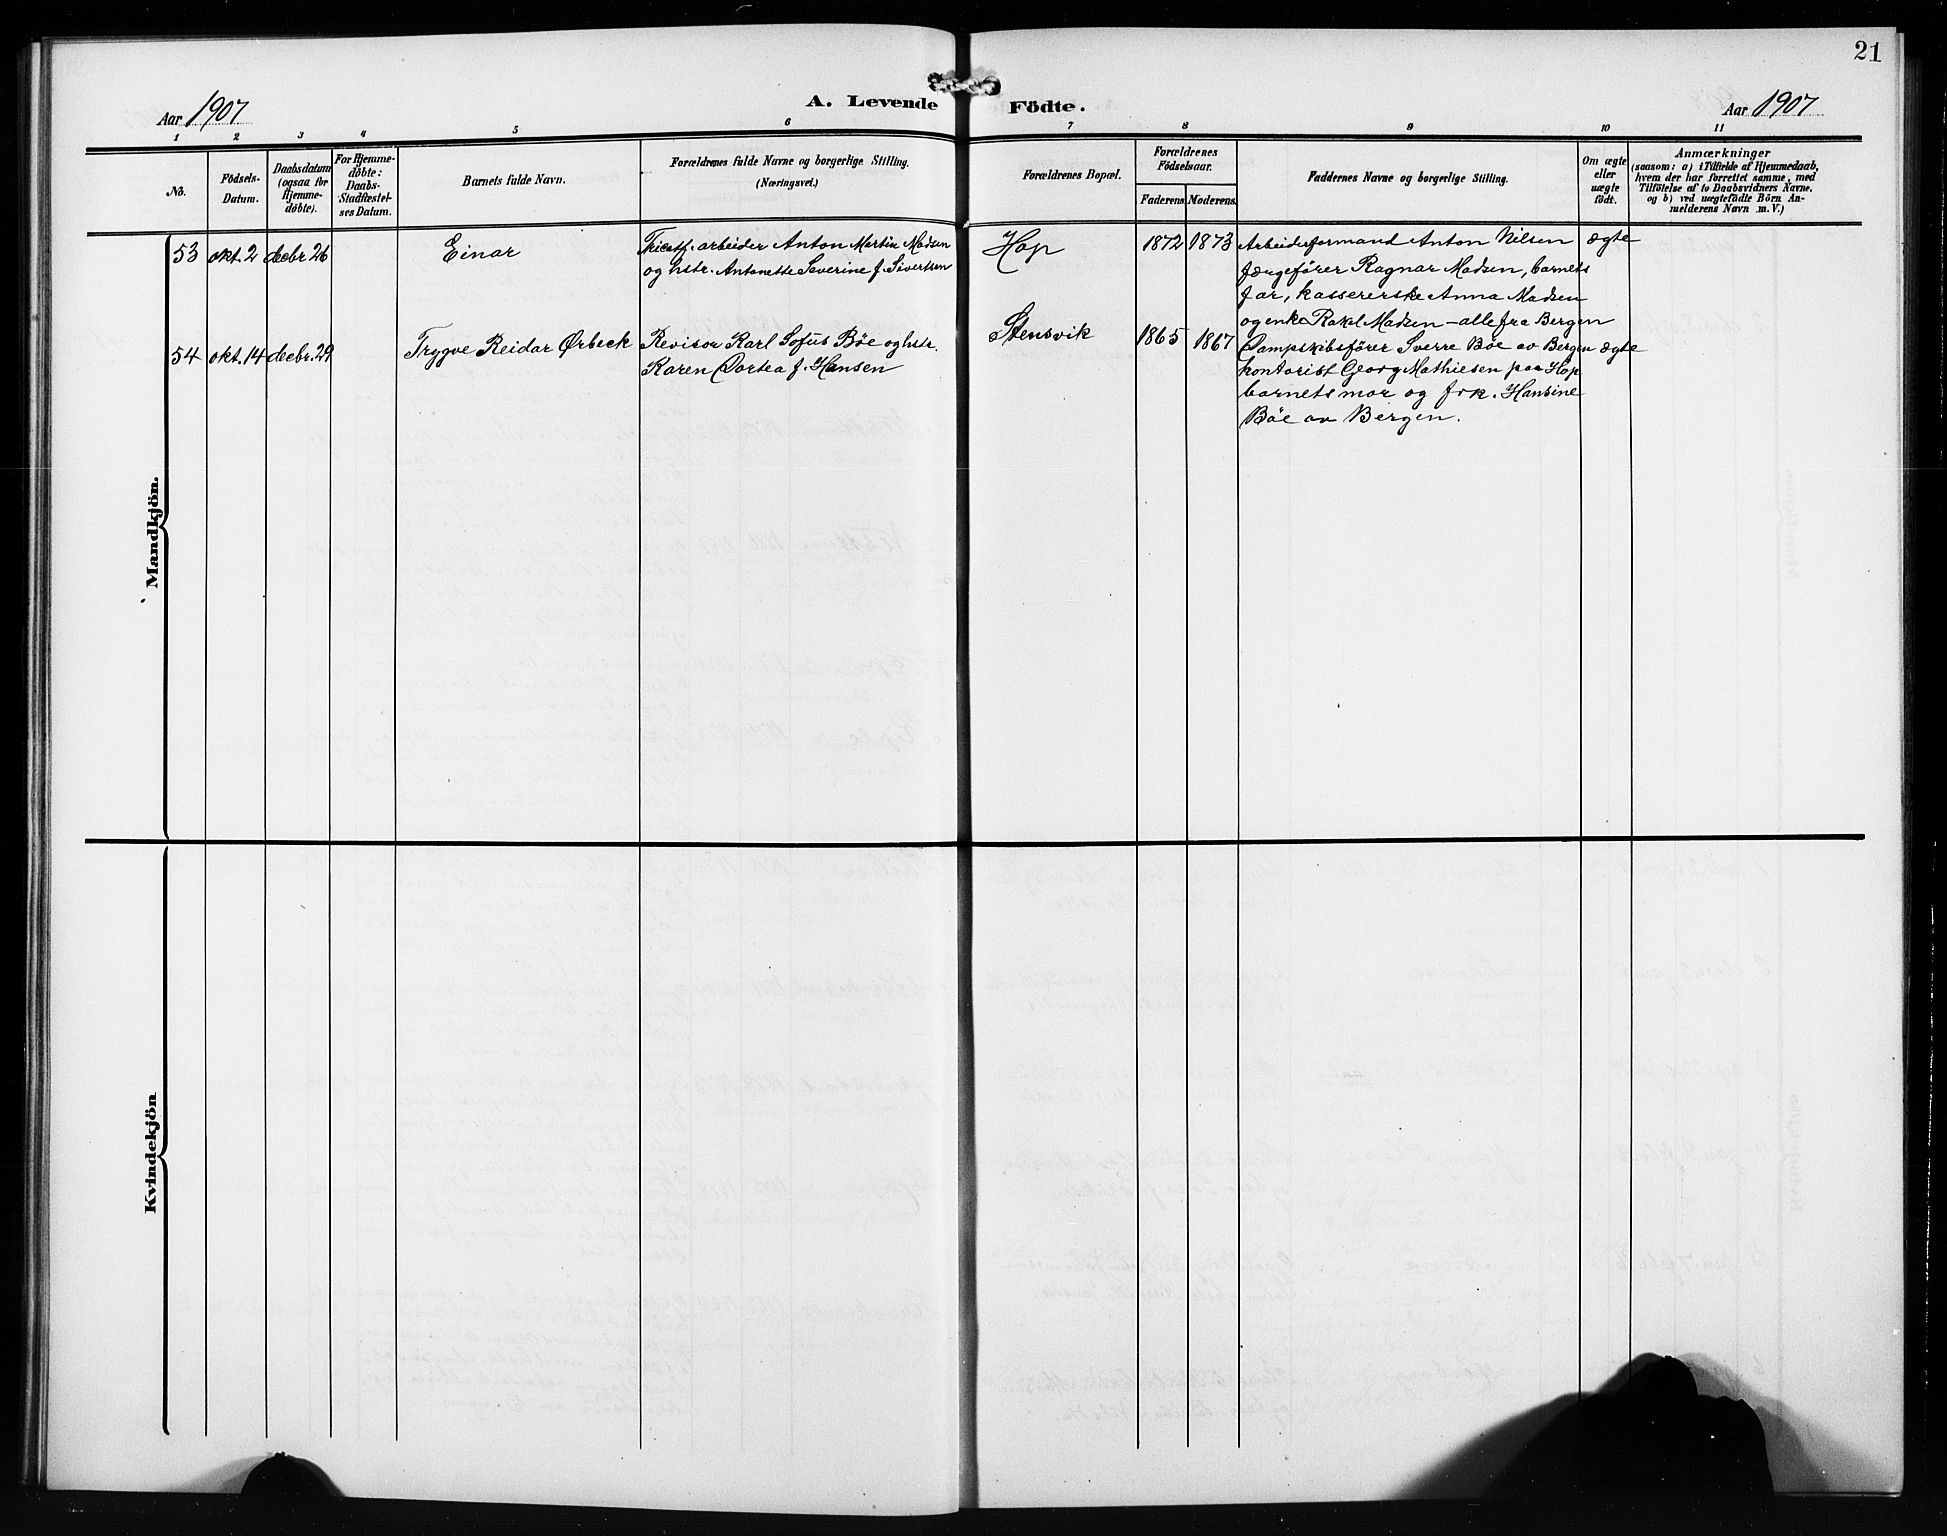 21
Aar 1907
A. Levende Födte.
Aar 1907
1 2 3 4 5 6 7 8 9 10 11
No.
Födsels-
Datum.
Daabsdatum
(ogsaa for
Hjemme-
döbte).
For Hjemme-
döbte:
Daabs-
Stadfæstel-
ses Datum.
Barnets fulde Navn.
Forældrenes fulde Navne og borgerlige Stilling.
(Næringsvei.)
Forældrenes Bopæl.
Forældrenes
Födselsaar.
Faderens. Moderens.
Faddernes Navne og borgerlige Stilling.
Om ægte
eller
uægte
födt.
Anmærkninger
(saasom: a) i Tilfælde af Hjemmedaab,
hvem der har forrettet samme, med
Tilföielse af to Daabsvidners Navne.
og b) ved uægtefödte Börn An-
melderens Navn m. V.)
Mandkjön.
53 okt. 2 decbr 26 Einar
Tricotf. arbeider Anton Martin Madsen
og hstr. Antonette Severine f. Sivertsen
Hop 1872 1873
Arbeidsformand Anton Nilsen
færgefører Ragnar Madsen, barnets
far, kassererske Anna Madsen
og enke Rakel Madsen - alle fra Bergen
ægte
54 okt. 14 decbr. 29 Trygve Reidar Ørbeck
Revisor Karl Sofus Bøe og hstr.
Karen Dortea f. Hansen
Stensvik 1865 1867
Dampskibsfører Sverre Bøe av Bergen
kontorist Georg Mathiesen paa Hop
barnets mor og frk. Hansine
Bøe av Bergen.
ægte
Kvindekjön